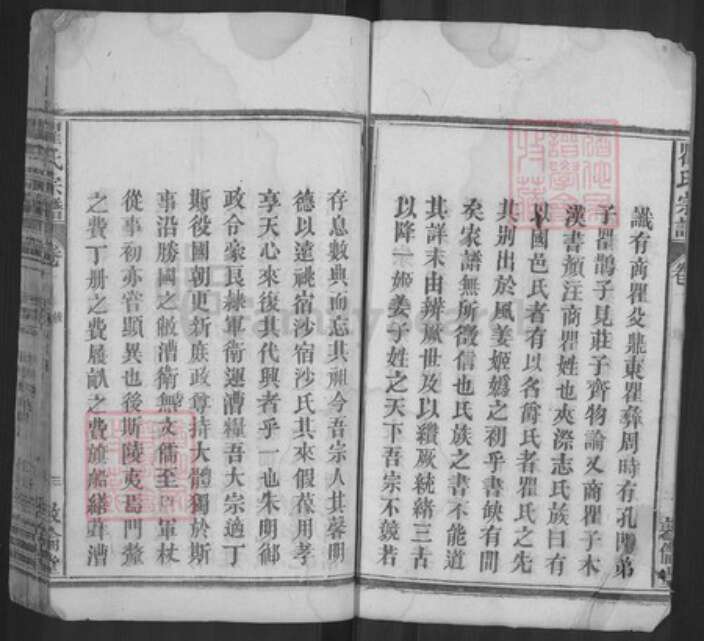 瞿氏宗譜 卷一
識有商瞿攴鼎東瞿彝周時有孔門弟
子瞿鵲子見莊子齊物論又商瞿子木
漢書顏注商瞿姓也夾漈志氏族曰有
以國邑氏者有以名爵氏者瞿氏之先
其別出於風姜姬嬀之初乎書缺有間
矣家譜無所徵信也氏族之書不能道
其詳末由辨厥世及以纘厥統緒三古
以降一姬姜子姓之天下吾宗不競若
存息數典而忘其祖今吾宗人其馨明
德以遠祧宿沙宿沙氏其來假葆用孝
享天心來復其代興者乎一也朱明御
政令豪民隸軍衛運漕糧吾大宗適丁
斯役國朝更新庶政尊持大體獨於斯
事沿勝國之敝漕衛無文儒至軍杖
從事初亦嘗顯異也後斯陵夷門釐
之費丁册之費履畝之費旗船繕葺漕
氏宗譜 卷
三